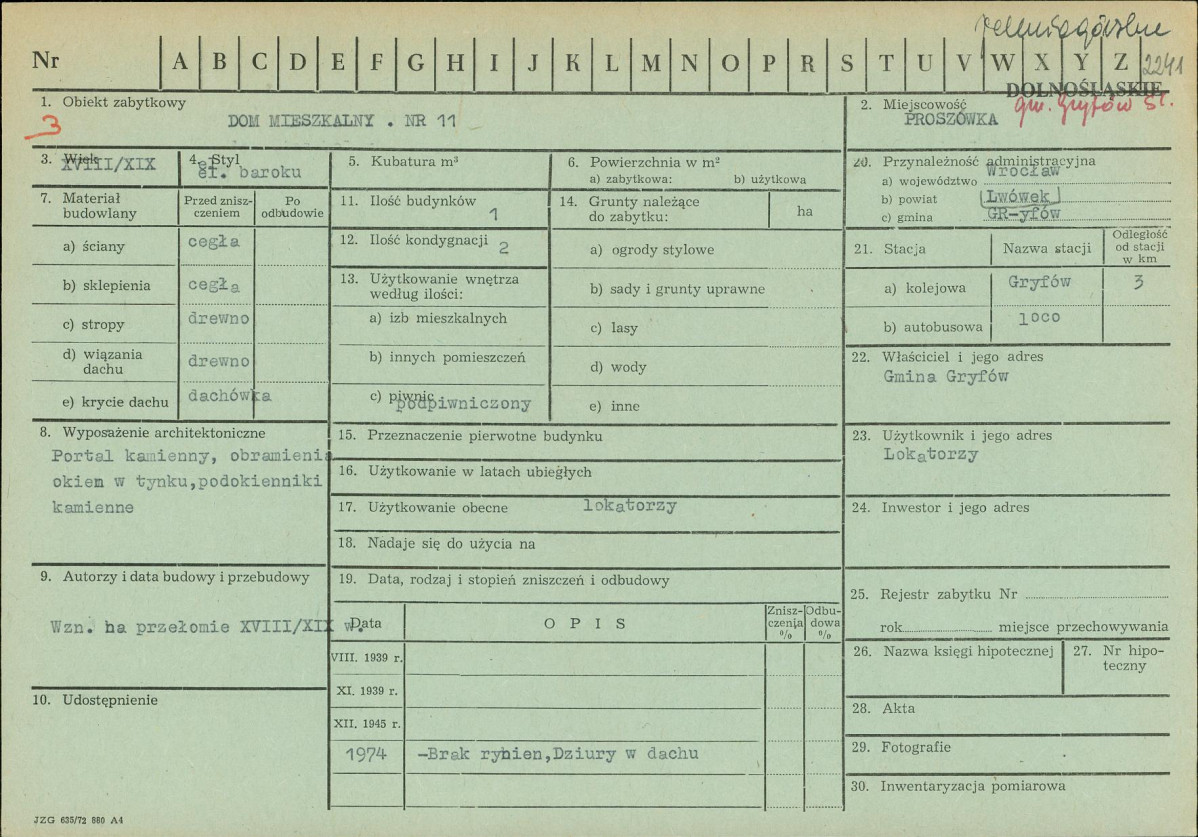 Jeleniogórskie
Nr A B C D E F G H I J K L M N O P R S T U V W X Y Z 2241
DOLNOŚLĄSKIE
gm. Gryfów Śl.
1. Obiekt zabytkowy
3
DOM MIESZKALNY . NR 11
2. Miejscowość
PROSZÓWKA
3. Wiek
XVIII/XIX
4. Styl
el. baroku
5. Kubatura m³
6. Powierzchnia w m²
a) zabytkowa: b) użytkowa
20. Przynależność administracyjna
a) województwo Wrocław
b) powiat Lwówek
c) gmina GR-yfów
7. Materiał budowlany
Przed zniszczeniem
Po odbudowie
a) ściany cegła
b) sklepienia cegła
c) stropy drewno
d) wiązania dachu drewno
e) krycie dachu dachówka
11. Ilość budynków 1
12. Ilość kondygnacji 2
13. Użytkowanie wnętrza
według ilości:
a) izb mieszkalnych
b) innych pomieszczeń
c) piwnic
podpiwniczony
14. Grunty należące
do zabytku:
ha
a) ogrody stylowe
b) sady i grunty uprawne
c) lasy
d) wody
e) inne
21. Stacja Nazwa stacji Odległość od stacji w km
a) kolejowa Gryfów 3
b) autobusowa loco
22. Właściciel i jego adres
Gmina Gryfów
8. Wyposażenie architektoniczne
Portal kamienny, obramieni
okien w tynku,podokienniki
kamienne
15. Przeznaczenie pierwotne budynku
16. Użytkowanie w latach ubiegłych
17. Użytkowanie obecne lokatorzy
18. Nadaje się do użycia na
23. Użytkownik i jego adres
Lokatorzy
24. Inwestor i jego adres
9. Autorzy i data budowy i przebudowy
Wzn. na przełomie XVIII/XIX w.
19. Data, rodzaj i stopień zniszczeń i odbudowy
Data OPIS Zniszczenia % Odbudowa %
VIII. 1939 r.
XI. 1939 r.
XII. 1945 r.
1974 -Brak rynien,Dziury w dachu
25. Rejestr zabytku Nr
rok miejsce przechowywania
26. Nazwa księgi hipotecznej
27. Nr hipoteczny
10. Udostępnienie
28. Akta
29. Fotografie
30. Inwentaryzacja pomiarowa
JZG 635/72 880 A4